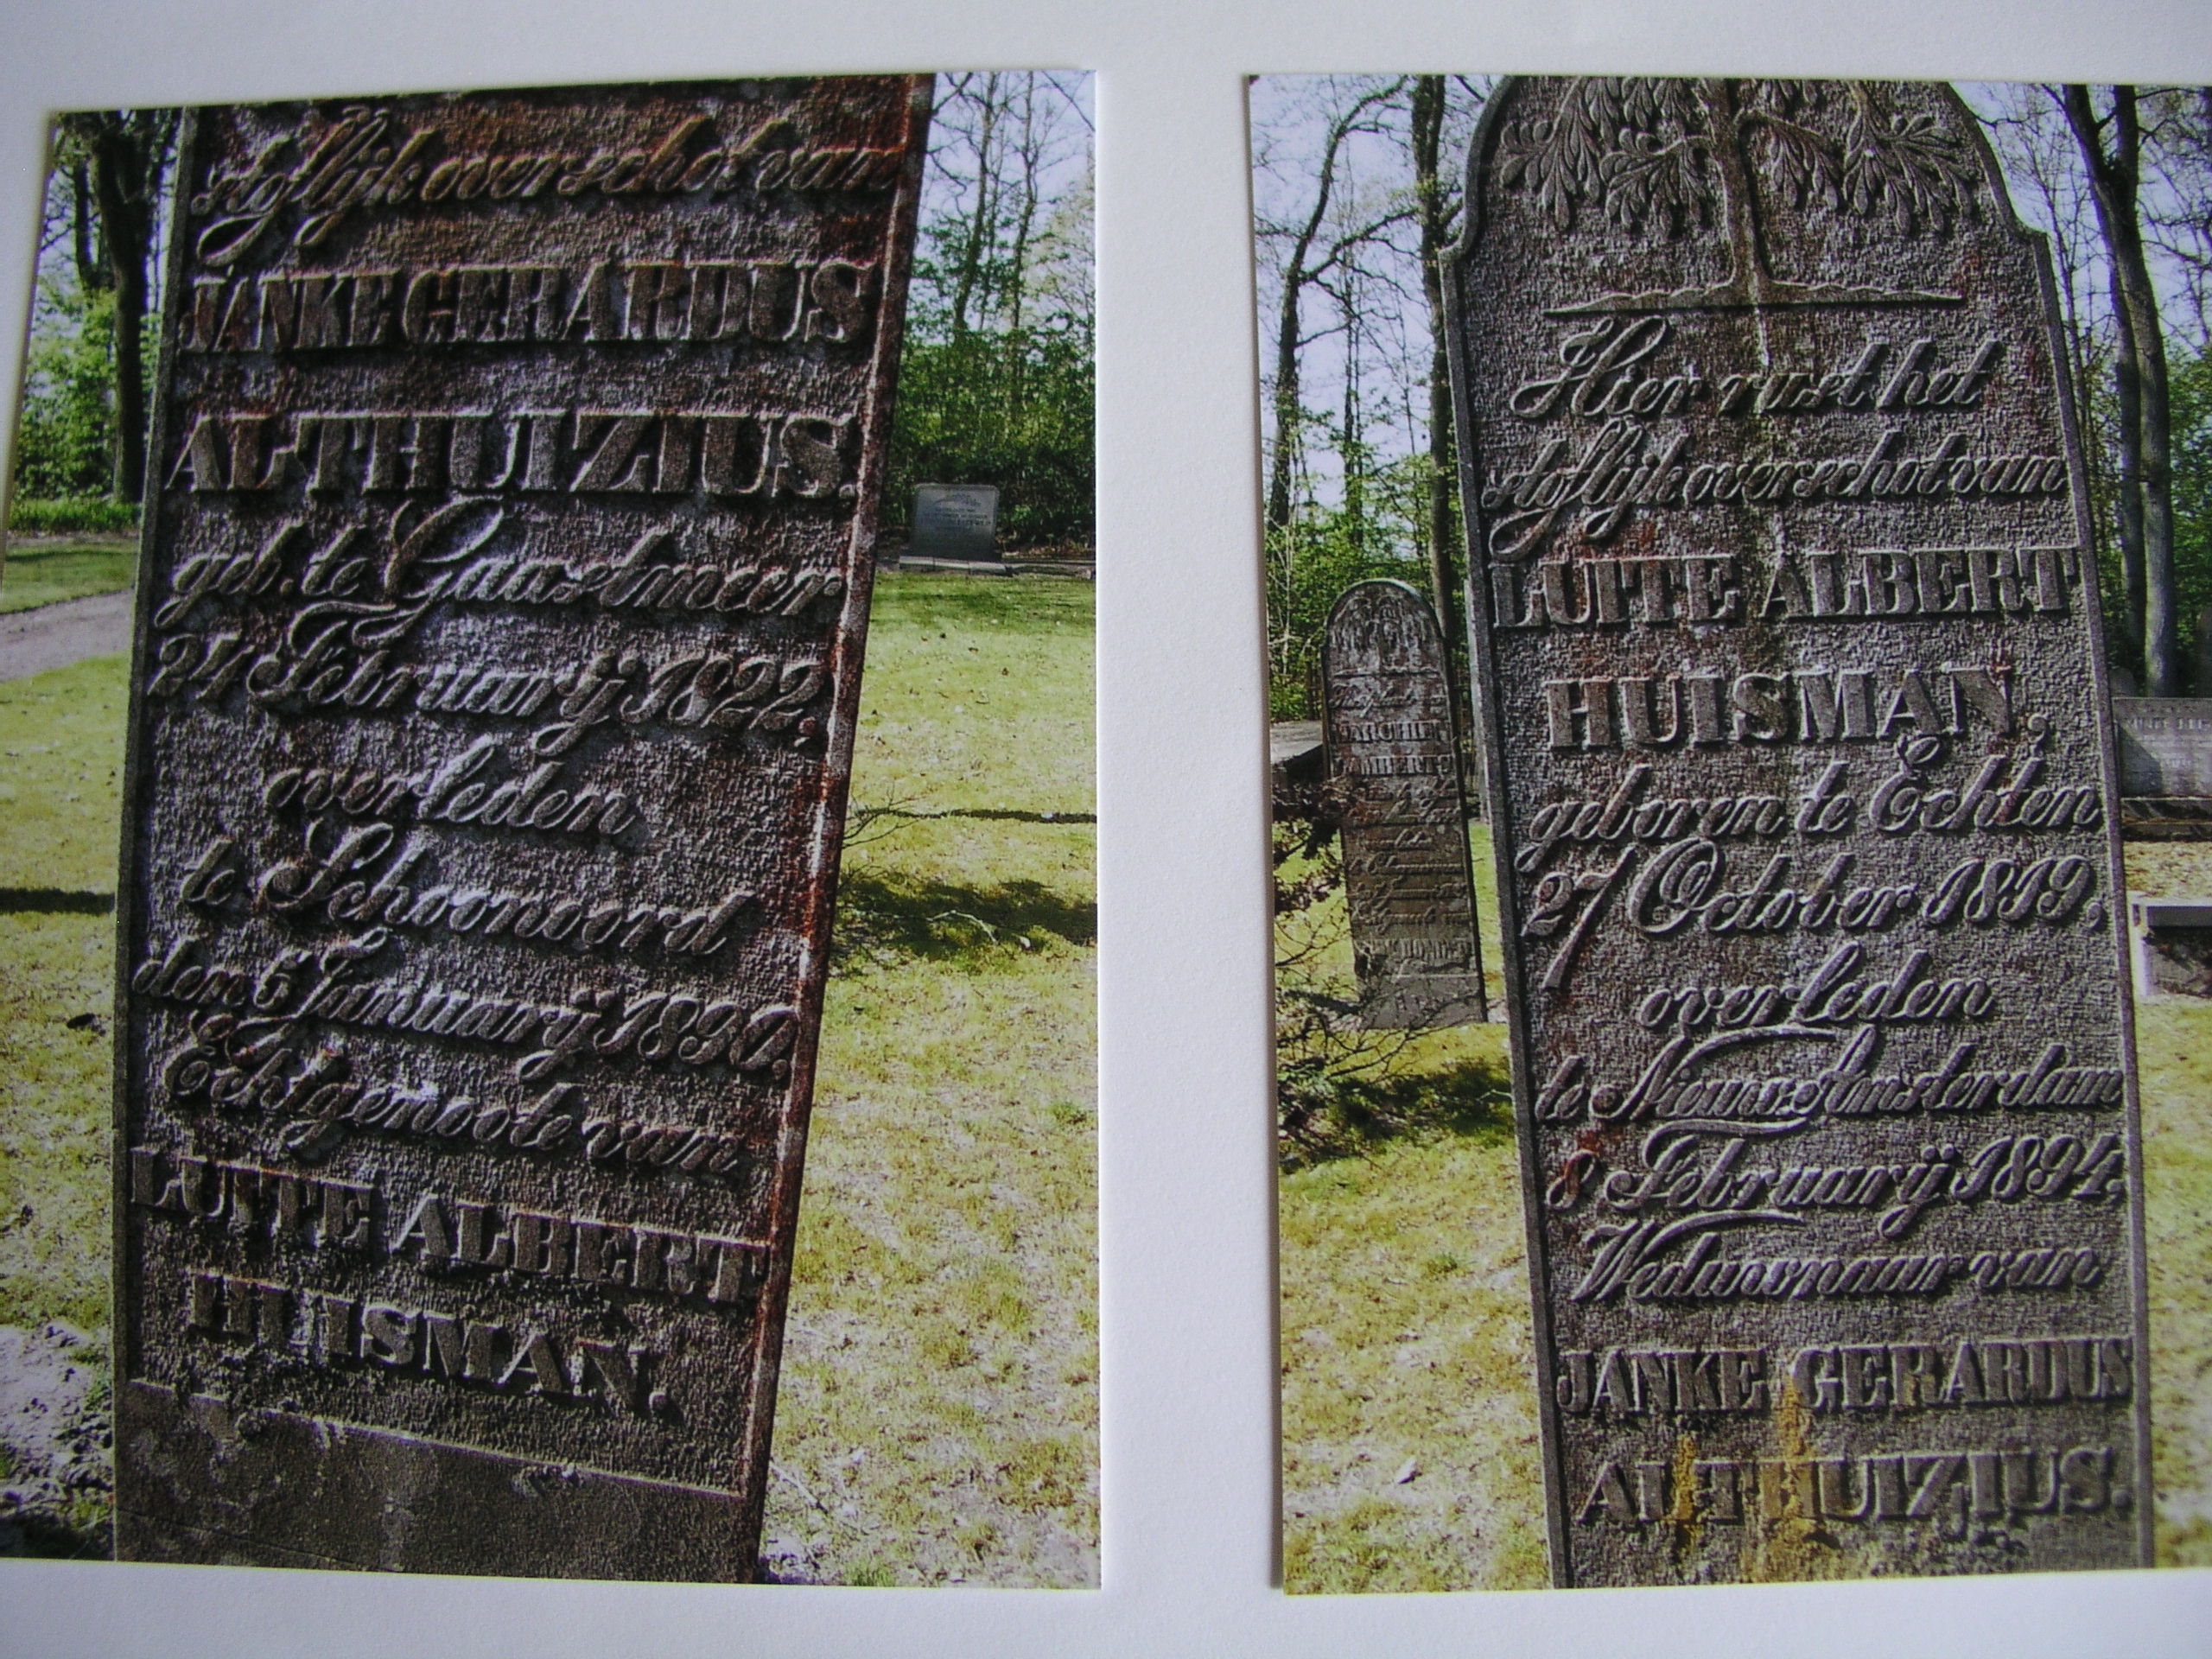 stoflijk overschot van
JANKE GERARDUS
ALTHUIZIUS.
geb. te Gaastmeer
24 Februarij 1822,
overleden
te Schoonoord
den 6 Januarij 1890.
Echtgenoote van
LUITE ALBERT
HUISMAN.
Hier rust het
stoflijk overschot van
LUITE ALBERT
HUISMAN,
geboren te Echten
27 October 1819,
overleden
te Nieuw-Amsterdam
8 Februarij 1894,
Weduwnaar van
JANKE GERARDUS
ALTHUIZIUS.